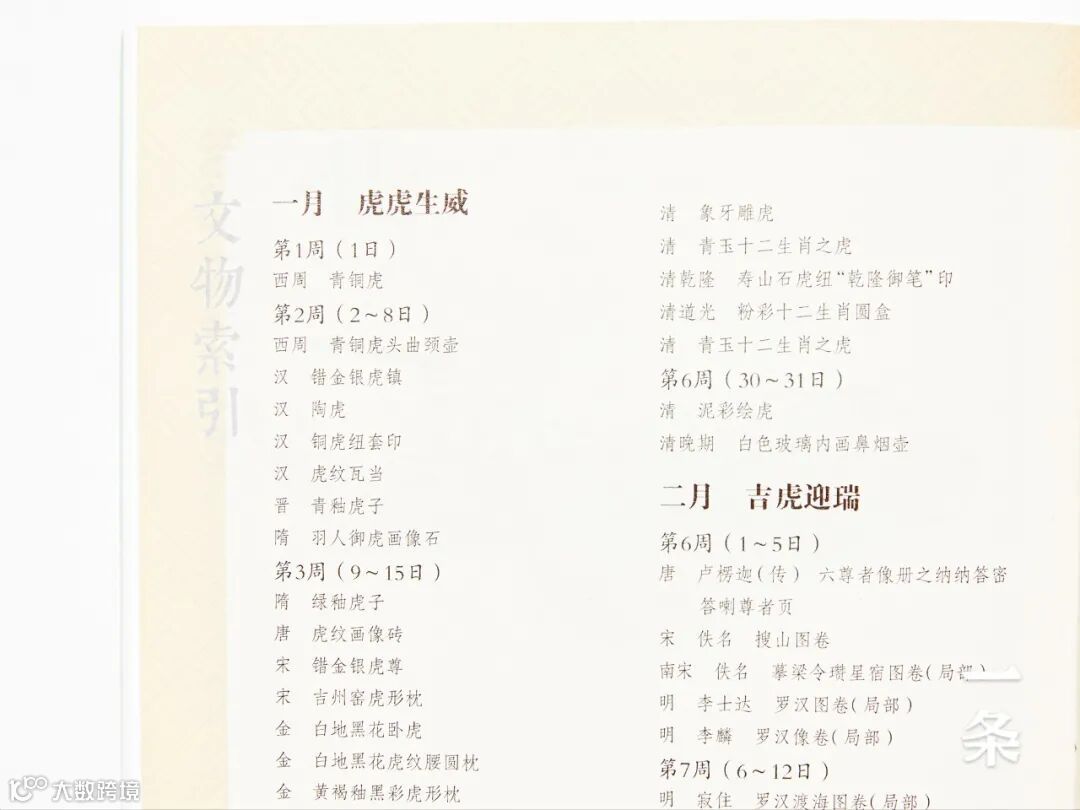 文物索引
一月 虎虎生威
第1周(1日)
西周 青铜虎
第2周(2~8日)
西周 青铜虎头曲颈壶
汉 错金银虎镇
汉 陶虎
汉 铜虎纽套印
汉 虎纹瓦当
晋 青釉虎子
隋 羽人御虎画像石
第3周(9~15日)
隋 绿釉虎子
唐 虎纹画像砖
宋 错金银虎尊
宋 吉州窑虎形枕
金 白地黑花卧虎
金 白地黑花虎纹腰圆枕
金 黄褐釉黑彩虎形枕
清 象牙雕虎
清 青玉十二生肖之虎
清乾隆 寿山石虎纽“乾隆御笔”印
清道光 粉彩十二生肖圆盒
清 青玉十二生肖之虎
第6周(30~31日)
清 泥彩绘虎
清晚期 白色玻璃内画鼻烟壶
二月 吉虎迎瑞
第6周(1~5日)
唐 卢楞迦(传) 六尊者像册之纳纳答密
答喇尊者页
宋 佚名 搜山图卷
南宋 佚名 摹梁令瓒星宿图卷(局部)
明 李士达 罗汉图卷(局部)
明 李麟 罗汉像卷(局部)
第7周(6~12日)
明 寂住 罗汉渡海图卷(局部)
一条
大数跨境